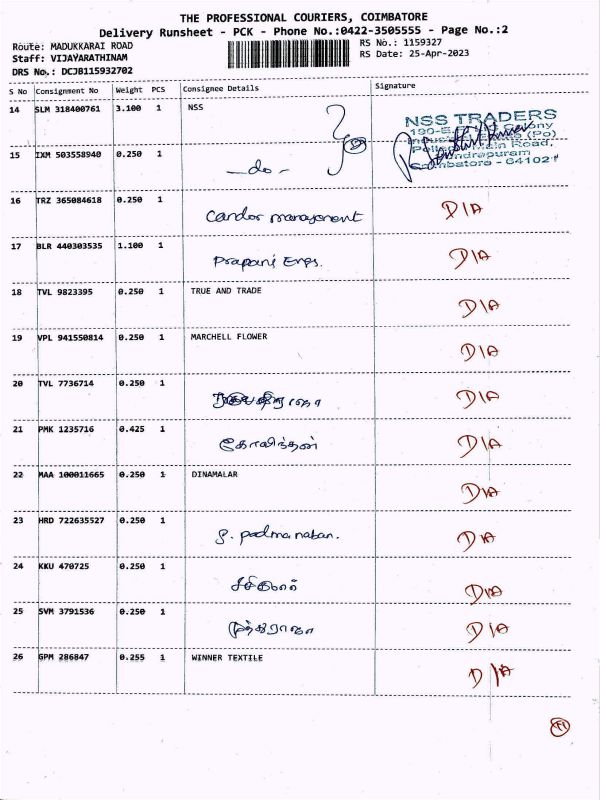 THE PROFESSIONAL COURIERS, COIMBATORE
Delivery Runsheet - PCK - Phone No.:0422-3505555 - Page No.:2
Route: MADUKKARAI ROAD
RS No.: 1159327
Staff: VIJAYARATHINAM
RS Date: 25-Apr-2023
DRS No.: DCJB115932702
S No Consignment No Weight PCS Consignee Details Signature
14 SLM 318400761 3.100 1 NSS
NSS TRADERS
Main Road,
Coimbatore - 641021
15 IXM 503558940 0.250 1
-do-
16 TRZ 365084618 0.250 1
Candor management D/A
17 BLR 440303535 1.100 1
Prapani Engs. D/A
18 TVL 9823395 0.250 1 TRUE AND TRADE
D/A
19 VPL 941550814 0.250 1 MARCHELL FLOWER
D/A
20 TVL 7736714 0.250 1
D/A
21 PMK 1235716 0.425 1
கோவிந்தன் D/A
22 MAA 100011665 0.250 1 DINAMALAR
D/A
23 HRD 722635527 0.250 1
P. Padmanaban. D/A
24 KKU 470725 0.250 1
சசிகுமார் D/A
25 SVM 3791536 0.250 1
முத்துராஜா D/A
26 GPM 286847 0.255 1 WINNER TEXTILE
D/A